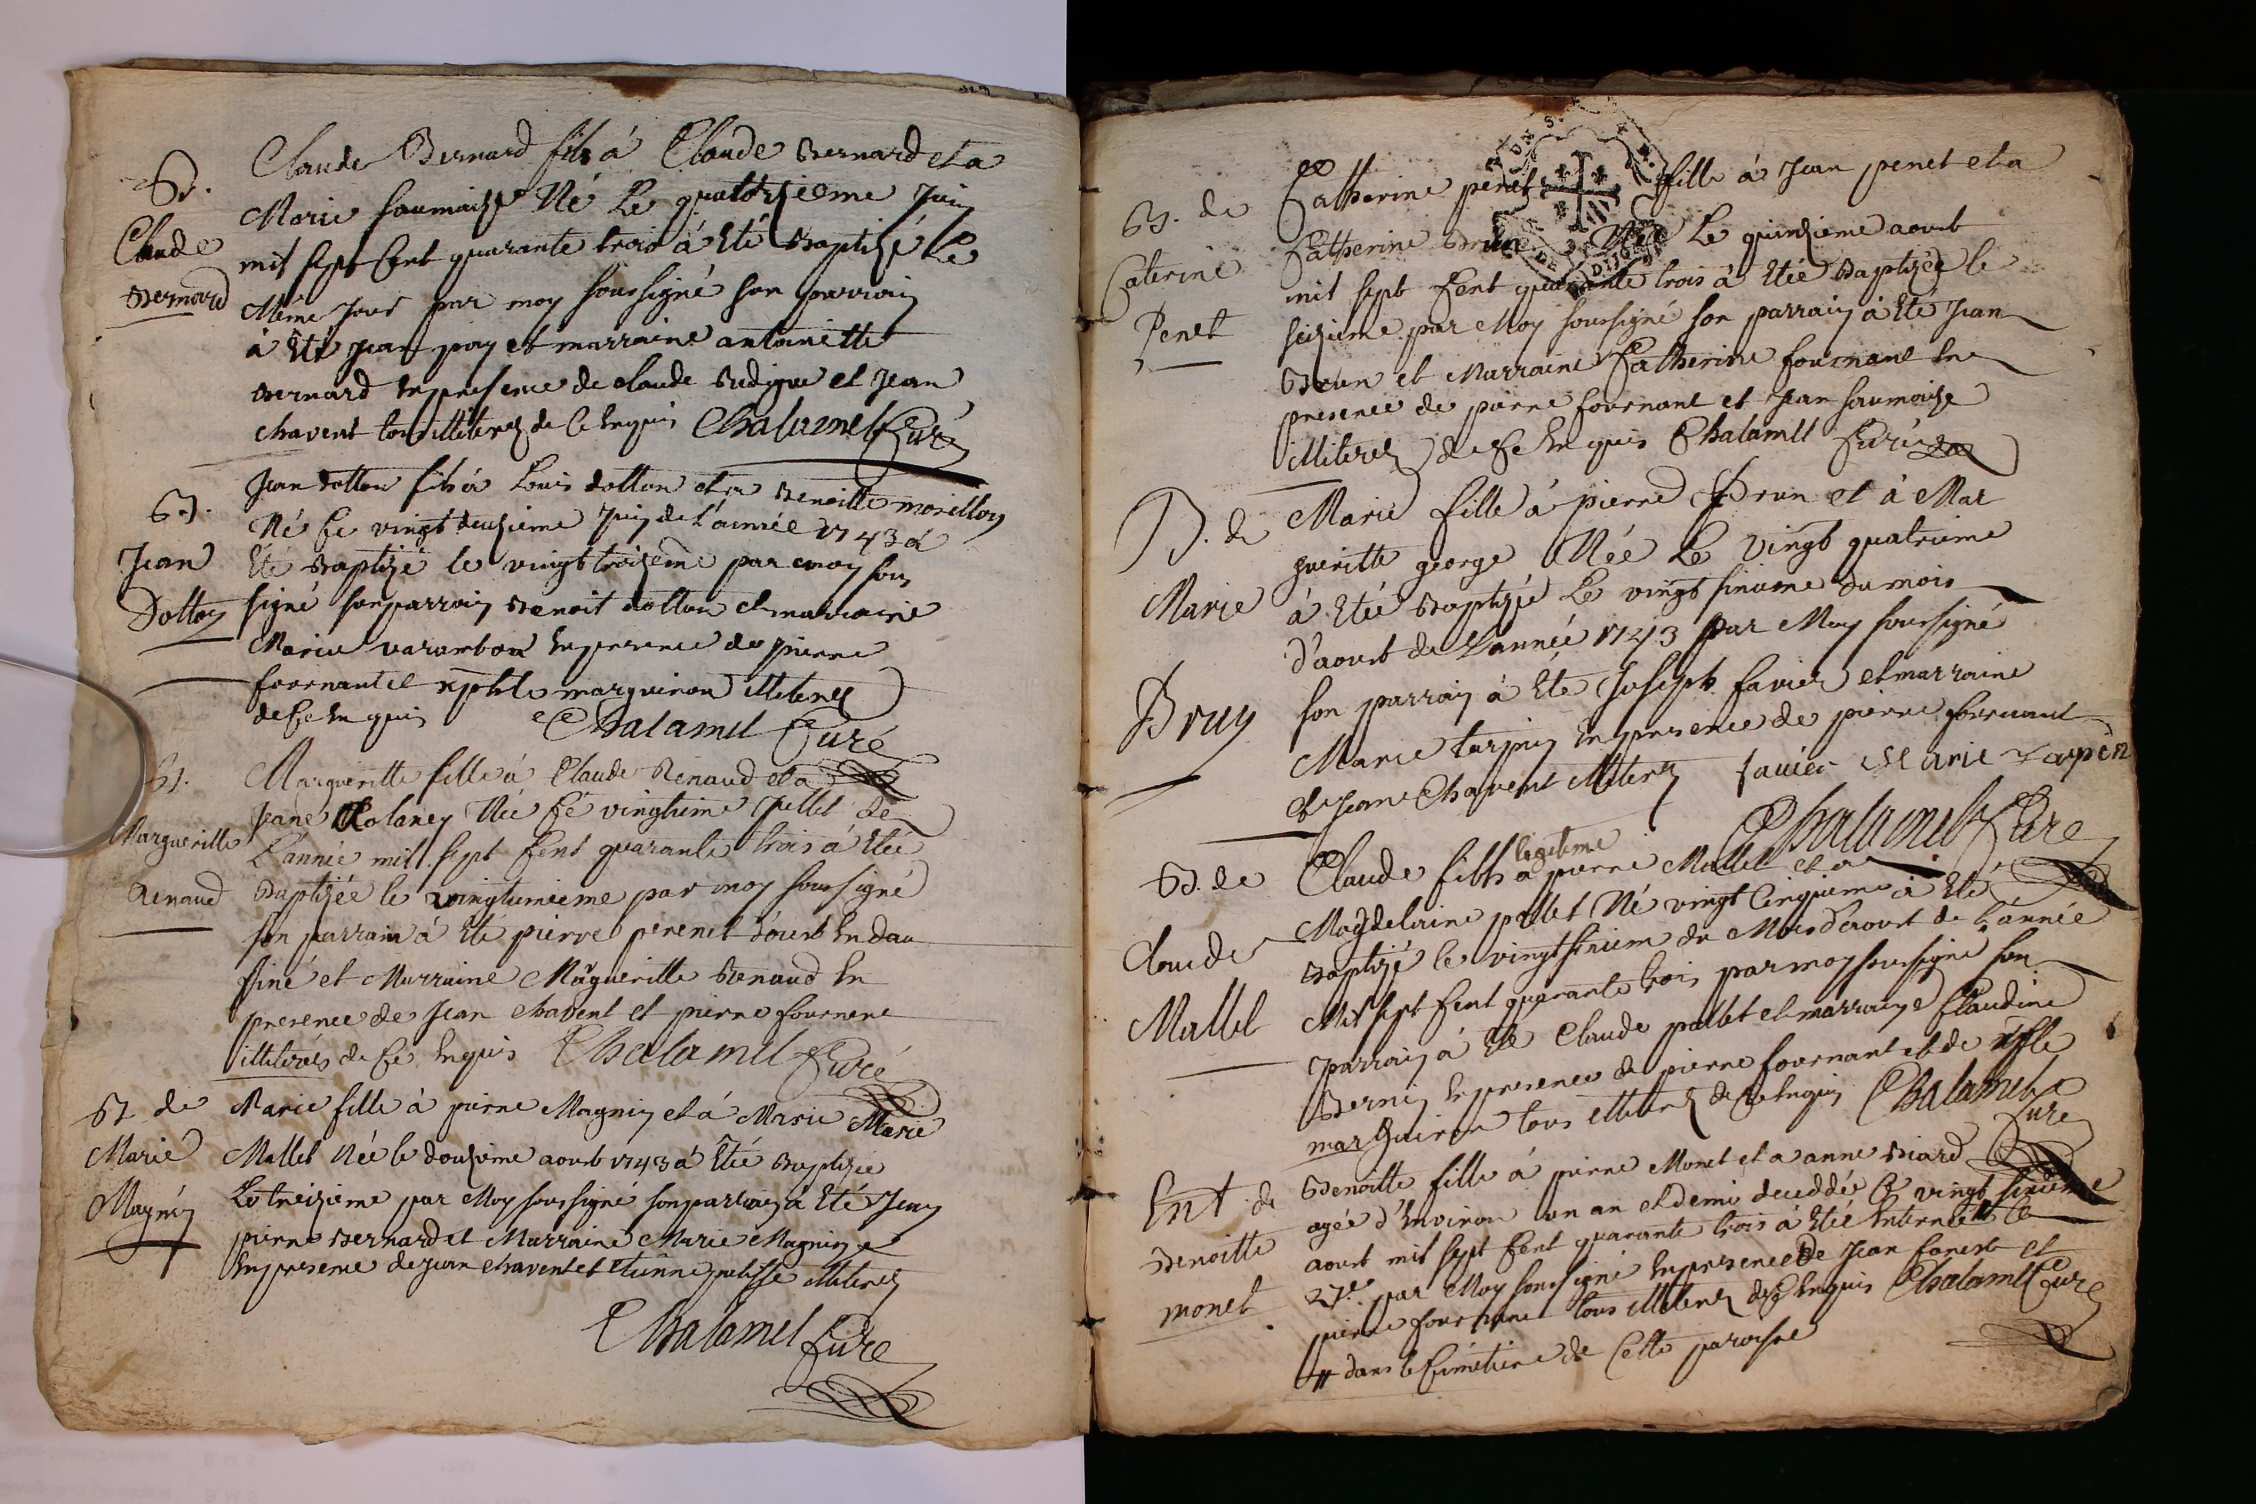 Bt.
Claude
Bernard
Claude Bernard fils à Claude Bernard et a
Marie Saumaize Né Le quatorzieme Juin
mil sept Cent quarante trois à Eté Baptizé Le
Même Jour par moy soussigné son parrain
à Eté Jean et marraine antoinette
Bernard En presence de claude et Jean
chavent tous illiterez de Ce Enquis Chalamel Curé
Bt.
Jean
Dollon
Jean dollon fils à Louis dollon et a Benoitte morillon
Né Ce vingt deuzieme Juin de L'année 1743 à
Eté Baptizé le vingt troizieme par moy sous
signé son parrain Benoit dollon et marraine
Marie varambon En presence de pierre
fournant et marguiron illiterez
de Ce Enquis Chalamel Curé
Bt.
Margueritte
Renaud
Margueritte fille à Claude Renaud et a
Jeane Née Ce vingtieme Juillet de
L'année mil sept Cent quarante trois à Etée
Baptizée le vingtunieme par moy soussigné
son parrain à Eté pierre perenet
et Marraine Margueritte Renaud En
presence de Jean chavent et pierre fournene
illiterés de Ce Enquis Chalamel Curé
Bt de
Marie
Magnin
Marie fille à pierre Magnin et à Marie Marie
Mallet Née le douzieme aoust 1743 à Etée Baptizée
Le treizieme par Moy soussigné son parrain à Eté Jean
pierre Bernard et Marraine Marie Magnin
En presence de Jean chavent et Etienne illiterez
Chalamel Curé
Bt. de
Caterine
Penet
Catherine penet fille à Jean penet et a
Catherine Brun Née Le quinzieme aoust
mil sept Cent quarante trois à Etée Baptizée le
seizieme par Moy soussigné son parrain à Eté Jean
Brun et Marraine Catherine fournant En
presence de pierre fournant et Jean Saumaize
illiterez de Ce Enquis Chalamel Curé
B. de
Marie
Brun
Marie fille à pierre Brun et à Mar
gueritte george Née Le Vingt quatrieme
à Etée Baptizée Le vingt sinieme du mois
d'aoust de L'année 1743 par Moy soussigné
son parrain à Eté Joseph favier et marraine
Marie tarpin En presence de pierre fournant
et Jean Chavent illiterez favier Marie Tarpin
Chalamel Curé
Bt. de
Claude
Mallet
legitime
Claude fils à pierre Mallet et a
Magdelaine pollet Né vingt Cinquieme à Eté
Baptizé le vingt sixiem du Mois d'aoust de L'année
Mil sept Cent quarante trois par moy soussigné son
parrain à Eté Claude pollet et marraine Claudine
Bernin En presence de pierre fournant et de
marguiron tous illiterez de Ce Enquis Chalamel
Curé
Ent de
Benoitte
monet
Benoitte fille à pierre Monet et a anne Biard
agée d'Environ un an et demi decedée le vingt sixieme
aoust mil sept Cent quarante trois à Etée Enterrée le
27e par Moy soussigné En presence de Jean forest et
pierre fournant tous illiterez de Ce Enquis Chalamel Curé
# dans le Cimetiere de Cette paroisse